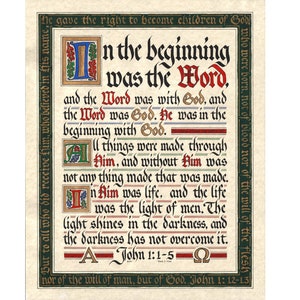 he gave the right to become children of God,
who were born, not of
nor of the will of man, but of God. John 1:12-13
But to all who did receive him, who believed in his name,
In the beginning
was the Word,
and the Word was with God, and
the Word was God. He was in the
beginning with God.
All things were made through
Him, and without Him was
not any thing made that was made.
In Him was life, and the life
was the light of men. The
light shines in the darkness, and
the darkness has not overcome it.
A John 1:1-5 Ω